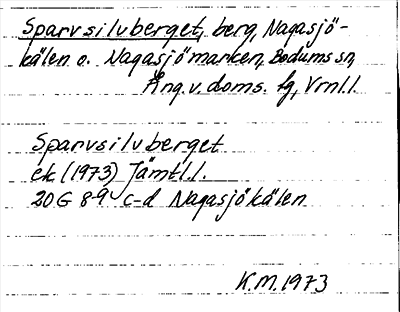 Sparvsilvberget, berg, Nagasjö-
kälen o. Nagasjömarken, Bodums sn,
Ång.v.doms. fg, Vrnl.l.
Sparvsilvberget
ek (1973) Jämtl.l.
20G 8-9 c-d Nagasjökälen
K.M.1973